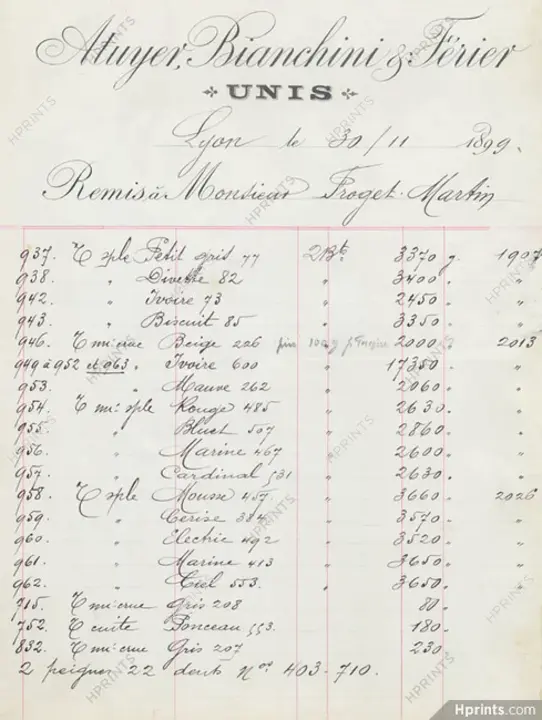 Atuyer, Bianchini & Férier
UNIS
Lyon le 30/11 1899.
Remis à Monsieur Froget-Martin
937. C sple Petit gris 77 2 Bts 3370 g. 1907
938. " Divette 82 " 3400 " "
942. " Ivoire 73 " 2450 " "
943. " Biscuit 85 " 3350 " "
946. C mi-cue Beige 226 2000 2013
949 à 952 et 963 " Ivoire 600 " 17350 " "
953. " Mauve 262 " 2060 " "
954. C mi-sple Rouge 485 " 2630 " "
955. " Bluet 507 " 2860 " "
956. " Marine 467 " 2600 " "
957. " Cardinal 531 " 2630 " "
958. C sple Mousse 457 " 3660 " 2026
959. " Cerise 384 " 3570 " "
960. " Electric 492 " 3520 " "
961. " Marine 413 " 3650 " "
962. " Ciel 553. " 3650 " "
715. C mi-crue Gris 208 80 "
752. C cuite Ponceau 553. 180 "
832. C mi-crue Gris 207 230 "
2 peignes 22 dents Nos 403-710.
HPRINTS
Hprints.com